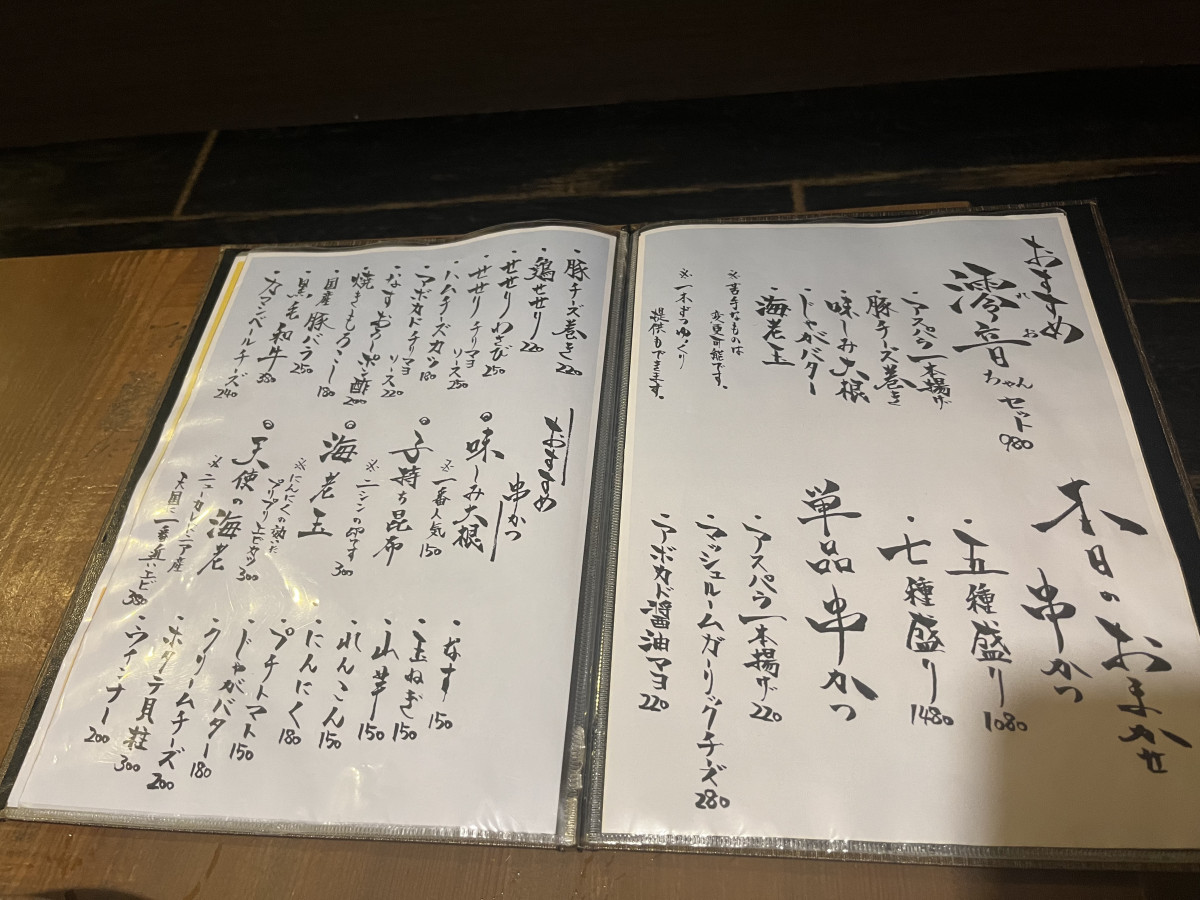 おすすめ
澪音ちゃんセット 980
れ お
・アスパラ一本揚げ
・豚チーズ巻き
・味しみ大根
・じゃがバター
・海老玉
※苦手なものは
変更可能です。
※一本ずつゆっくり
提供もできます。
本日のおまかせ
串かつ
・五種盛り 1080
・七種盛り 1480
単品串かつ
・アスパラ一本揚げ 220
・マッシュルームガーリックチーズ 280
・アボカド醤油マヨ 220
・豚チーズ巻き 220
・鶏せせり 220
・せせりわさび 250
・せせりチリマヨ
・ハムチーズカツ ソース 250
・アボカドチリマヨ 180
・なす おろし ソース 220
・焼きとうもろこし ポン酢 200
・国産豚バラ 180
・黒毛和牛 250
・カマンベールチーズ 240
おすすめ
串かつ
◎味しみ大根
※一番人気 150
◎子持ち昆布
※ニシンの卵です 300
◎海老玉
※にんにくの効いた
プリプリエビカツ 300
◎天使の海老
※ニューカレドニア産
天国に一番近いエビ 380
・なす 150
・玉ねぎ 150
・山芋 150
・れんこん 150
・にんにく 180
・プチトマト 150
・じゃがバター 180
・クリームチーズ 200
・ホタテ貝柱 300
・ウインナー 200